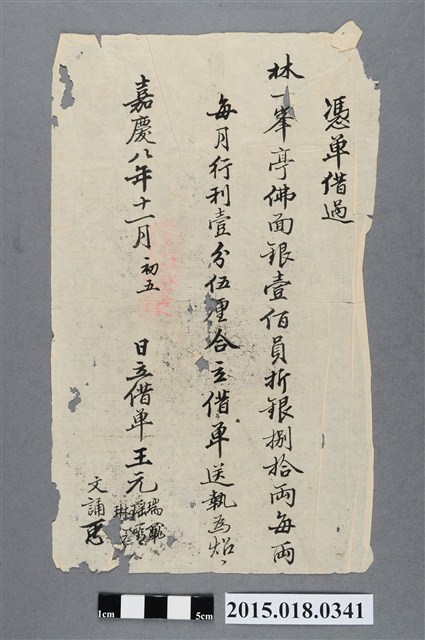 憑单借過
林一峯亭佛面銀壹佰員折銀捌拾両每両
每月行利壹分伍厘合立借单送執為炤
嘉慶八年十一月初五日立借单王元
瑞
瑶
琳
文誦
1cm
5cm
2015.018.0341